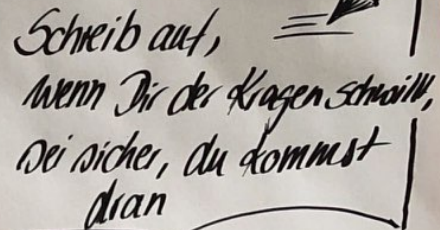 Schreib auf,
wenn Dir der Kragen schwillt,
sei sicher, du kommst
dran